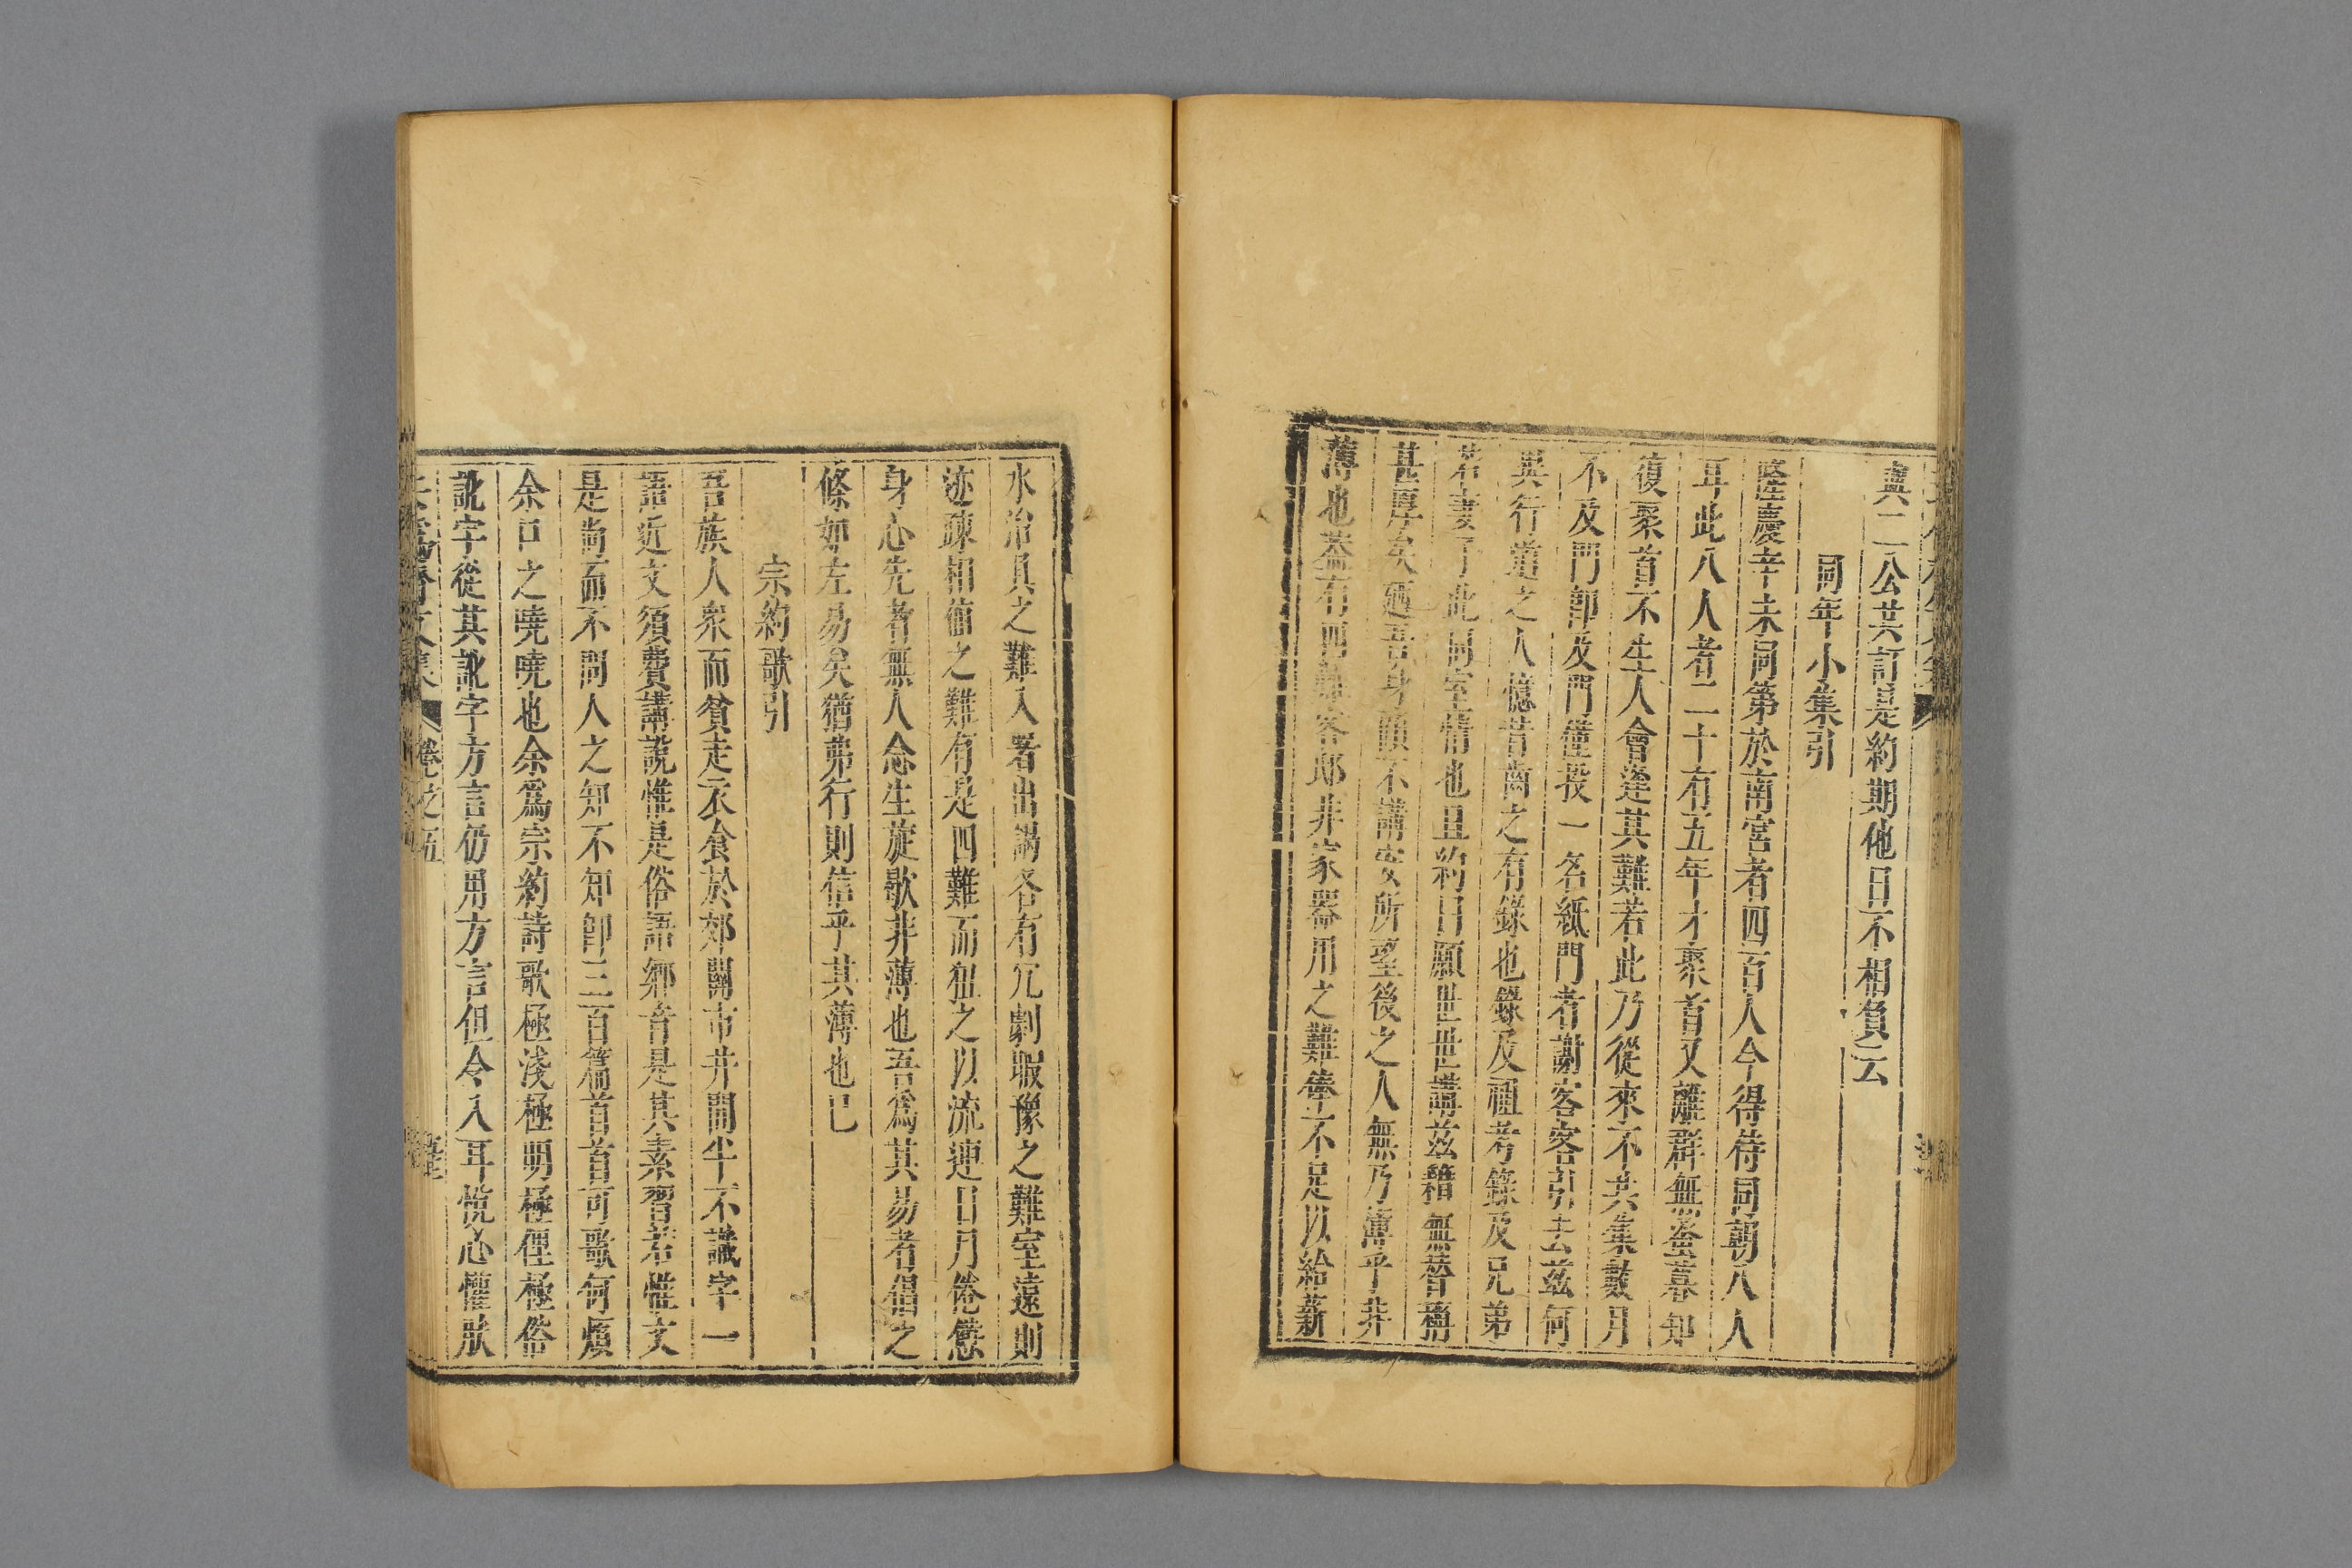 與二公共訂是約期他日不相負云
同年小集引
隆慶辛未同第於南宮者四百人今得待同朝八人
耳此八人者二十有五年才聚首又離群無蚤暮知
復聚首不生人會逢其難若此乃從來不共集數月
不及門卽及門僅投一名紙門者謝客客引去茲何
異行道之人憶昔齒之有錄也錄及祖考錄及兄弟
若妻子此同室情也且約曰願世世講茲籍無替稱
甚厚矣廼吾身顧不講安所望後之人無乃薄乎非
薄也葢有四難客邸非家器用之難俸不足以給薪
水治具之難入署出謁各有冗劇暇豫之難室遠則
迹疎相値之難有是四難而狃之以流連日月倦憊
身心先者無人念生旋歇非薄也吾爲其易者倡之
條如左易矣猶弗行則信乎其薄也已
宗約歌引
吾族人衆而貧走衣食於郊關市井間半不識字一
語近文須費講說惟是俗語鄉音是其素習若惟文
是尚而不問人之知不知卽三百篇首首可歌何煩
余口之曉曉也余爲宗約詩歌極淺極明極俚極俗
訛字從其訛字方言仍用方言但令入耳悅心懽狀
去僞齋文集 卷之五